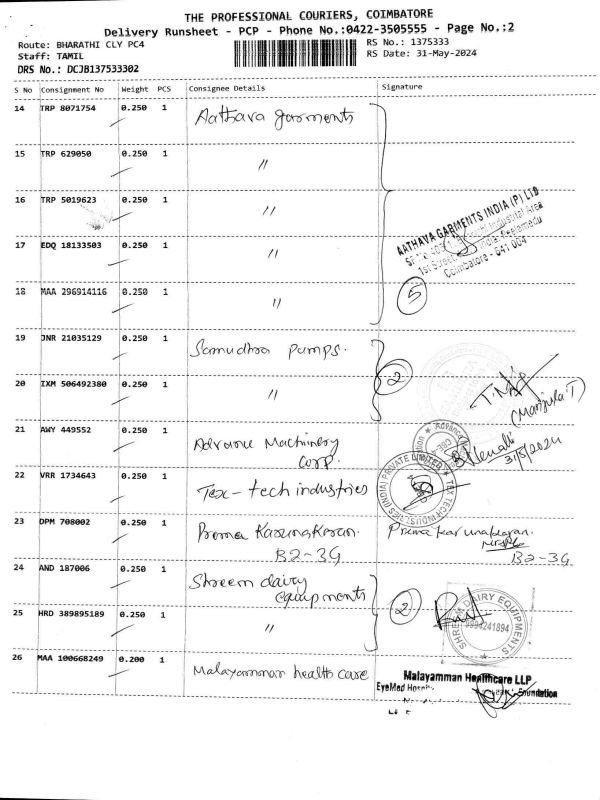 THE PROFESSIONAL COURIERS, COIMBATORE
Delivery Runsheet - PCP - Phone No.:0422-3505555 - Page No.:2
Route: BHARATHI CLY PC4
RS No.: 1375333
Staff: TAMIL
RS Date: 31-May-2024
DRS No.: DCJB137533302
S No Consignment No Weight PCS Consignee Details Signature
14 TRP 8071754 0.250 1 Aathava garments
15 TRP 629050 0.250 1 "
16 TRP 5019623 0.250 1 "
AATHAVA GARMENTS INDIA (P) LTD
Industrial Area
1st Street Peelamedu
Coimbatore - 641 004
17 EDQ 18133503 0.250 1 "
18 MAA 296914116 0.250 1 "
5
19 JNR 21035129 0.250 1 Samudhra pumps.
2
20 IXM 506492380 0.250 1 "
(Manjula.T)
21 AWY 449552 0.250 1 Advance Machinery
Corp.
31/5/2024
22 VRR 1734643 0.250 1 Tex-tech industries
TEX TECH INDUSTRIES (INDIA) PRIVATE LIMITED
23 DPM 708002 0.250 1 Prema Karunakaran.
B2-3G
Prema karunakaran.
B2-3G
24 AND 187006 0.250 1 Shreem dairy
equipments
2
SHREEM DAIRY EQUIPMENTS
9994241894
25 HRD 389895189 0.250 1 "
26 MAA 100668249 0.200 1 Malayamman health care
Malayamman Healthcare LLP
EyeMed Foundation